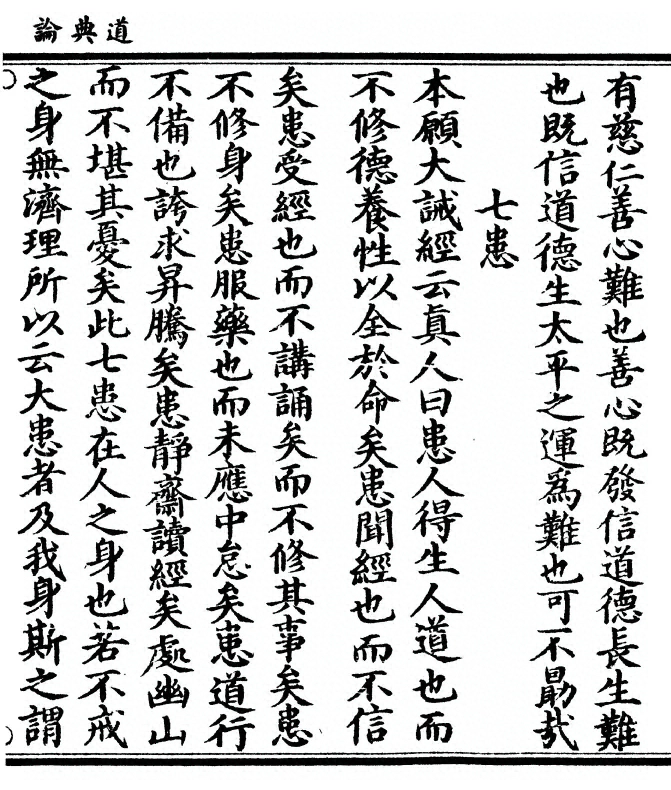 道典論
有慈仁善心難也善心既發信道德長生難
也既信道德生太平之運為難也可不勗哉
七患
本願大誡經云真人曰患人得生人道也而
不修德養性以全於命矣患聞經也而不信
矣患受經也而不講誦矣而不修其事矣患
不修身矣患服藥也而未應中怠矣患道行
不備也誇求昇騰矣患靜齋讀經矣處幽山
而不堪其憂矣此七患在人之身也若不戒
之身無濟理所以云大患者及我身斯之謂